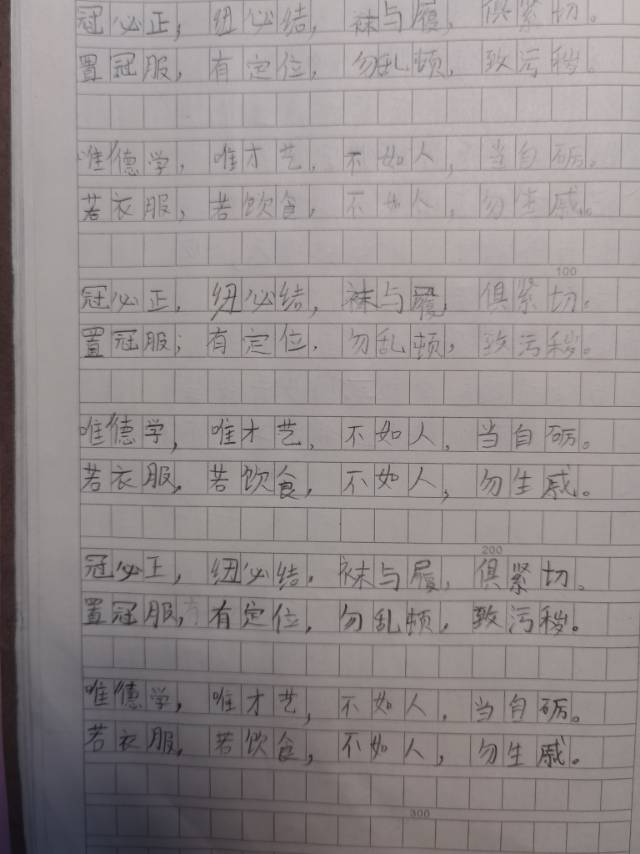 冠必正，纽必结，袜与履，俱紧切。
置冠服，有定位，勿乱顿，致污秽。
唯德学，唯才艺，不如人，当自砺。
若衣服，若饮食，不如人，勿生戚。
100
冠必正，纽必结，袜与履，俱紧切。
置冠服，有定位，勿乱顿，致污秽。
唯德学，唯才艺，不如人，当自砺。
若衣服，若饮食，不如人，勿生戚。
200
冠必正，纽必结，袜与履，俱紧切。
置冠服，有定位，勿乱顿，致污秽。
唯德学，唯才艺，不如人，当自砺。
若衣服，若饮食，不如人，勿生戚。
300